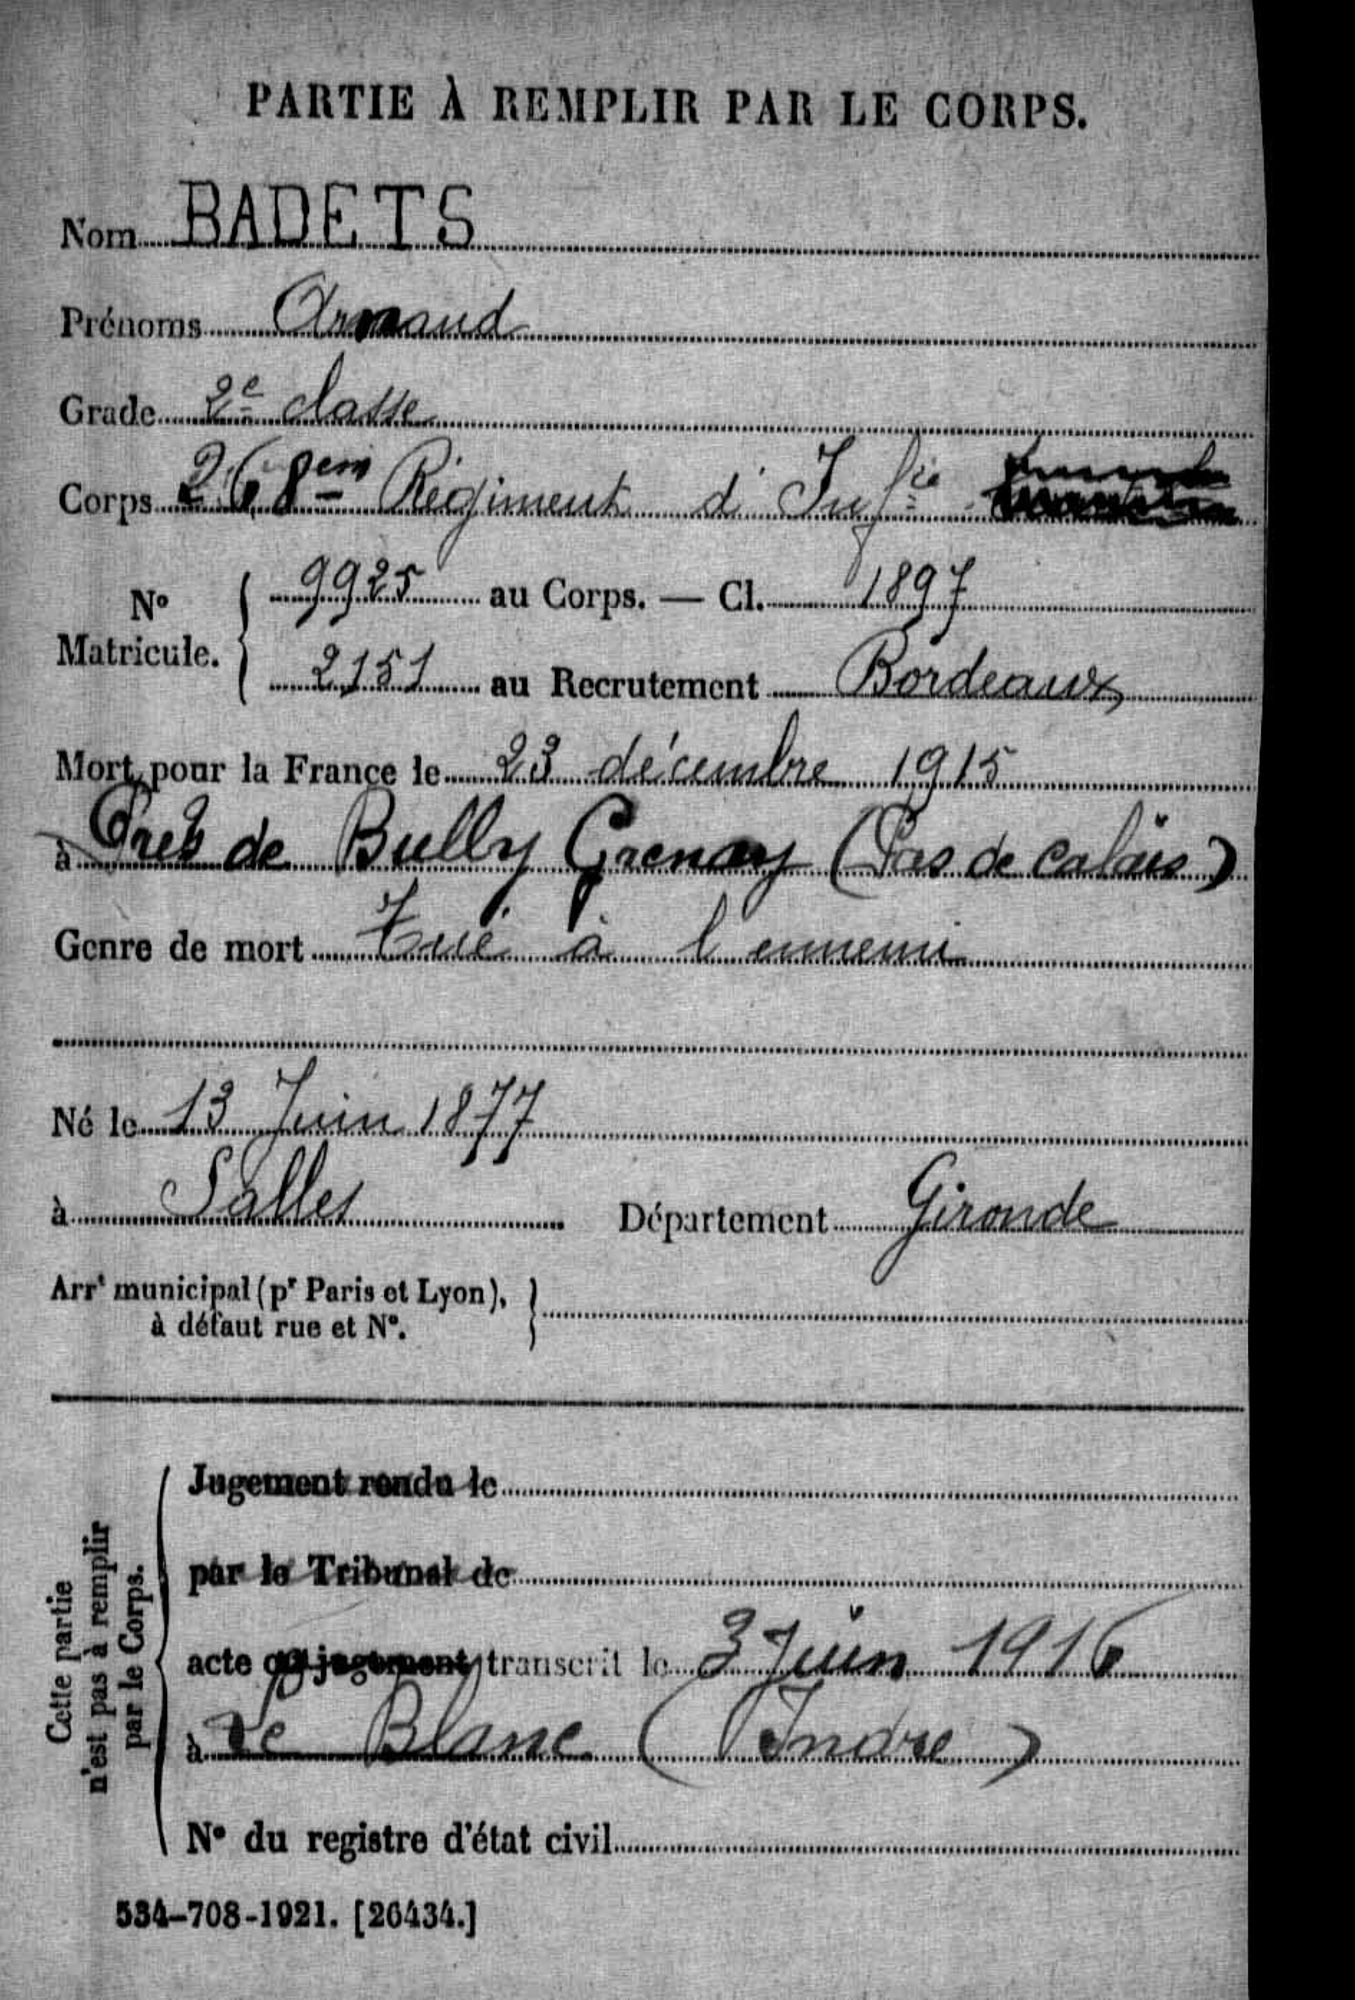 PARTIE À REMPLIR PAR LE CORPS.
Nom BADETS
Prénoms Armand
Grade 2e classe
Corps 268em Régiment d'Infie
No Matricule. { 9925 au Corps. — Cl. 1897
2151 au Recrutement Bordeaux
Mort pour la France le 23 décembre 1915
à Près de Bully Grenay (Pas de calais)
Genre de mort Tué à l'ennemi
Né le 13 Juin 1877
à Salles Département Gironde
Arrt municipal (pr Paris et Lyon), }
à défaut rue et No.
Cette partie
n'est pas à remplir
par le Corps.
Jugement rendu le
par le Tribunal de
acte ou jugement transcrit le 3 Juin 1916
à Le Blanc (Indre)
No du registre d'état civil
534-708-1921. [26434.]